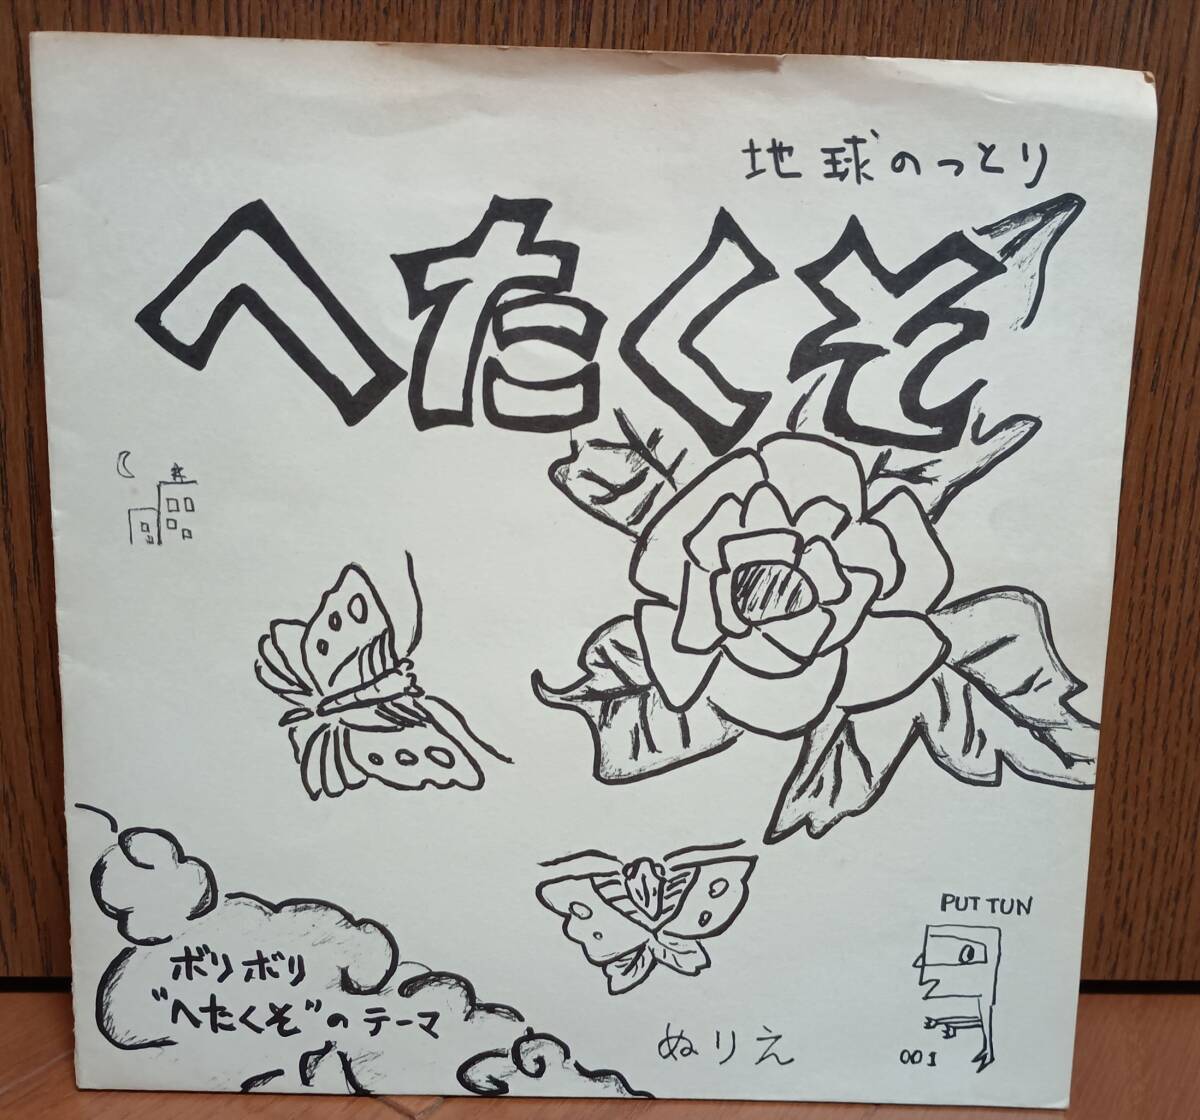 地球のっとり
へたくそ
ボリボリ
"へたくそ"のテーマ
ぬりえ
PUT TUN
001